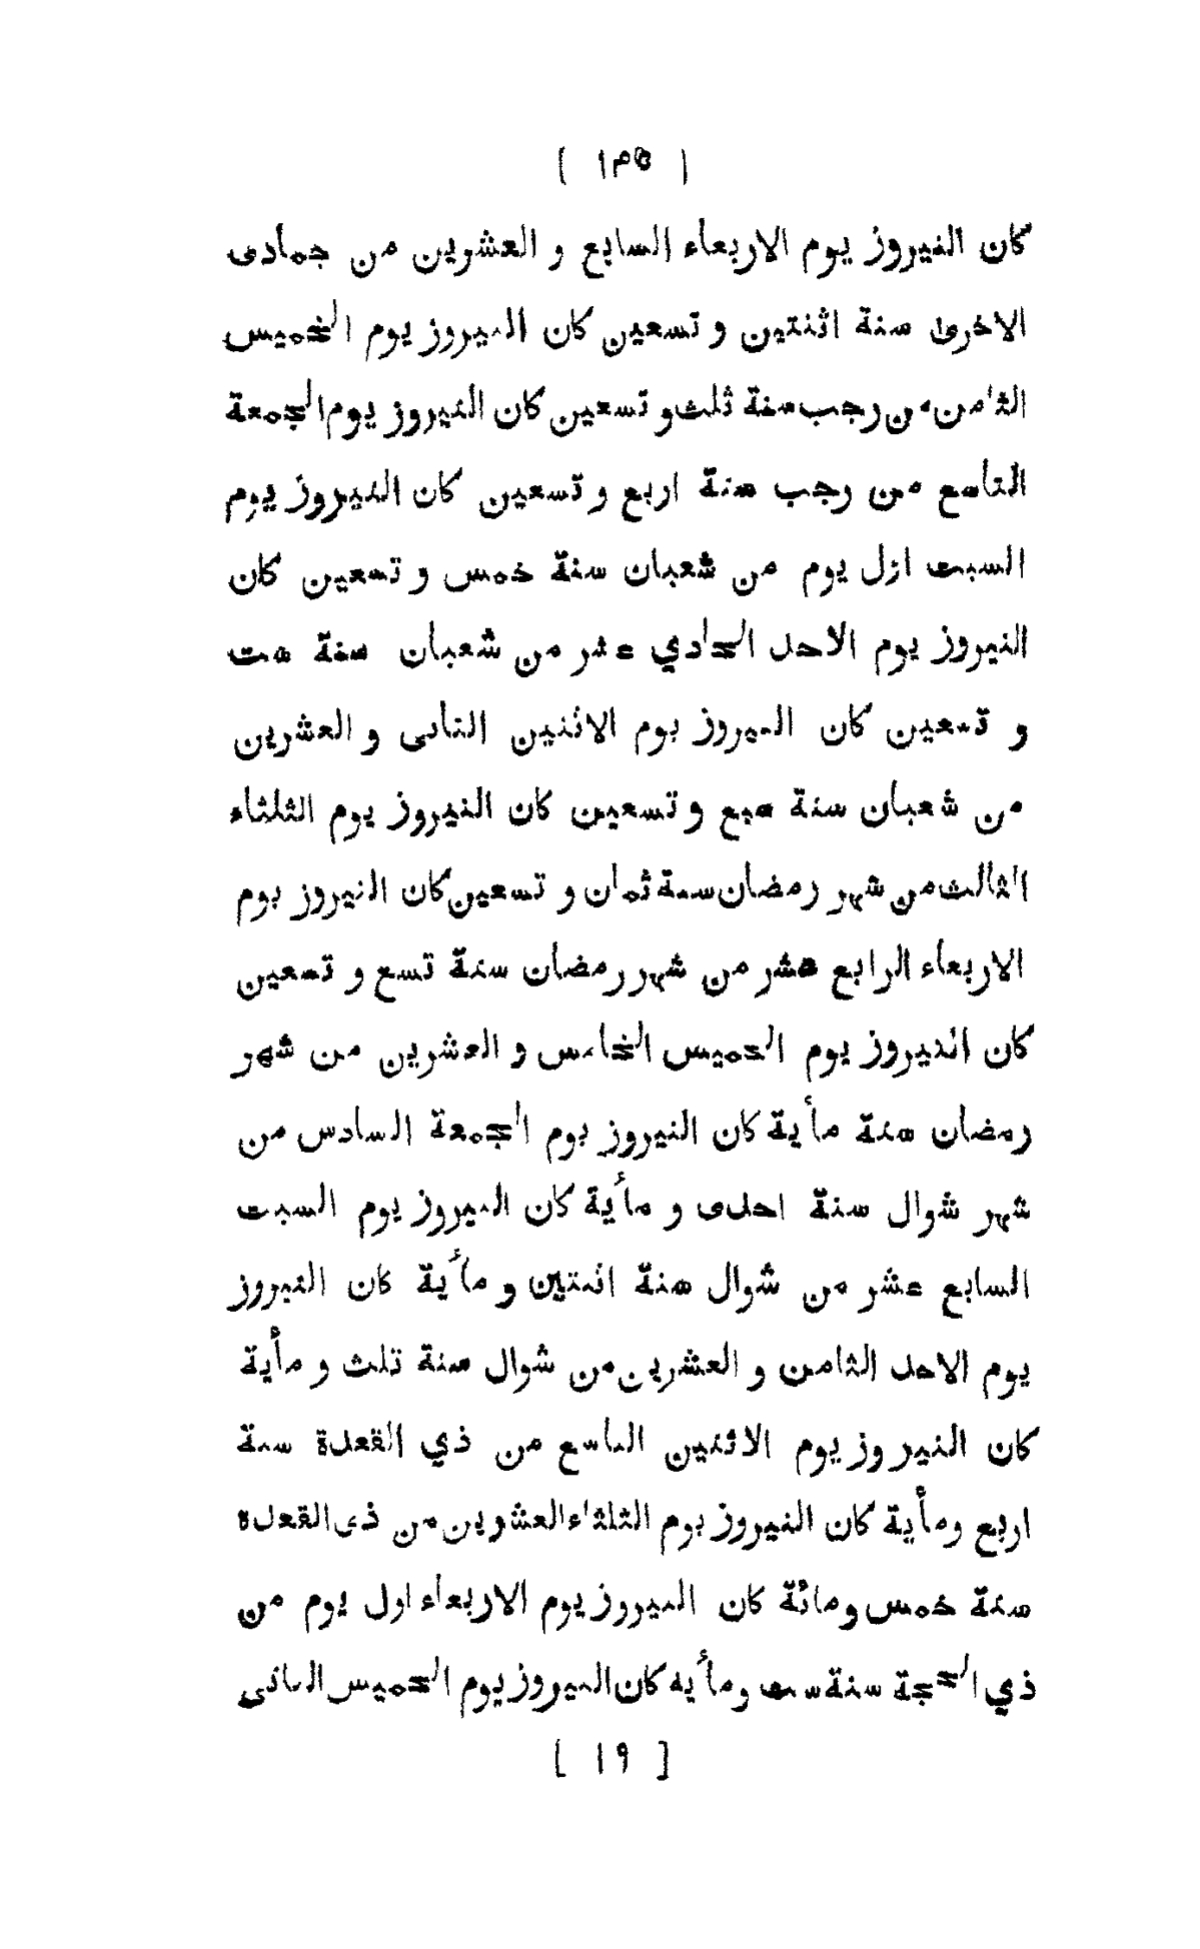 ( ١٣٥ )
كان النيروز يوم الاربعاء السابع و العشرين من جمادى
الاخرى سنة اثنتين و تسعين كان النيروز يوم الخميس
الثامن من رجب سنة ثلث و تسعين كان النيروز يوم الجمعة
التاسع من رجب سنة اربع و تسعين كان النيروز يوم
السبت ازل يوم من شعبان سنة خمس و تسعين كان
النيروز يوم الاحد الحادي عشر من شعبان سنة ست
و تسعين كان النيروز يوم الاثنين الثانى و العشرين
من شعبان سنة سبع و تسعين كان النيروز يوم الثلثاء
الثالث من شهر رمضان سنة ثمان و تسعين كان النيروز يوم
الاربعاء الرابع عشر من شهر رمضان سنة تسع و تسعين
كان النيروز يوم الخميس الخامس و العشرين من شهر
رمضان سنة مأية كان النيروز يوم الجمعة السادس من
شهر شوال سنة احدى و مأية كان النيروز يوم السبت
السابع عشر من شوال سنة اثنتين و مأية كان النيروز
يوم الاحد الثامن و العشرين من شوال سنة ثلث و مأية
كان النيروز يوم الاثنين التاسع من ذي القعدة سنة
اربع ومأية كان النيروز يوم الثلثاء العشرين من ذى القعدة
سنة خمس ومائة كان النيروز يوم الاربعاء اول يوم من
ذي الحجة سنة ست ومأية كان النيروز يوم الخميس الثانى
[ ١٩ ]